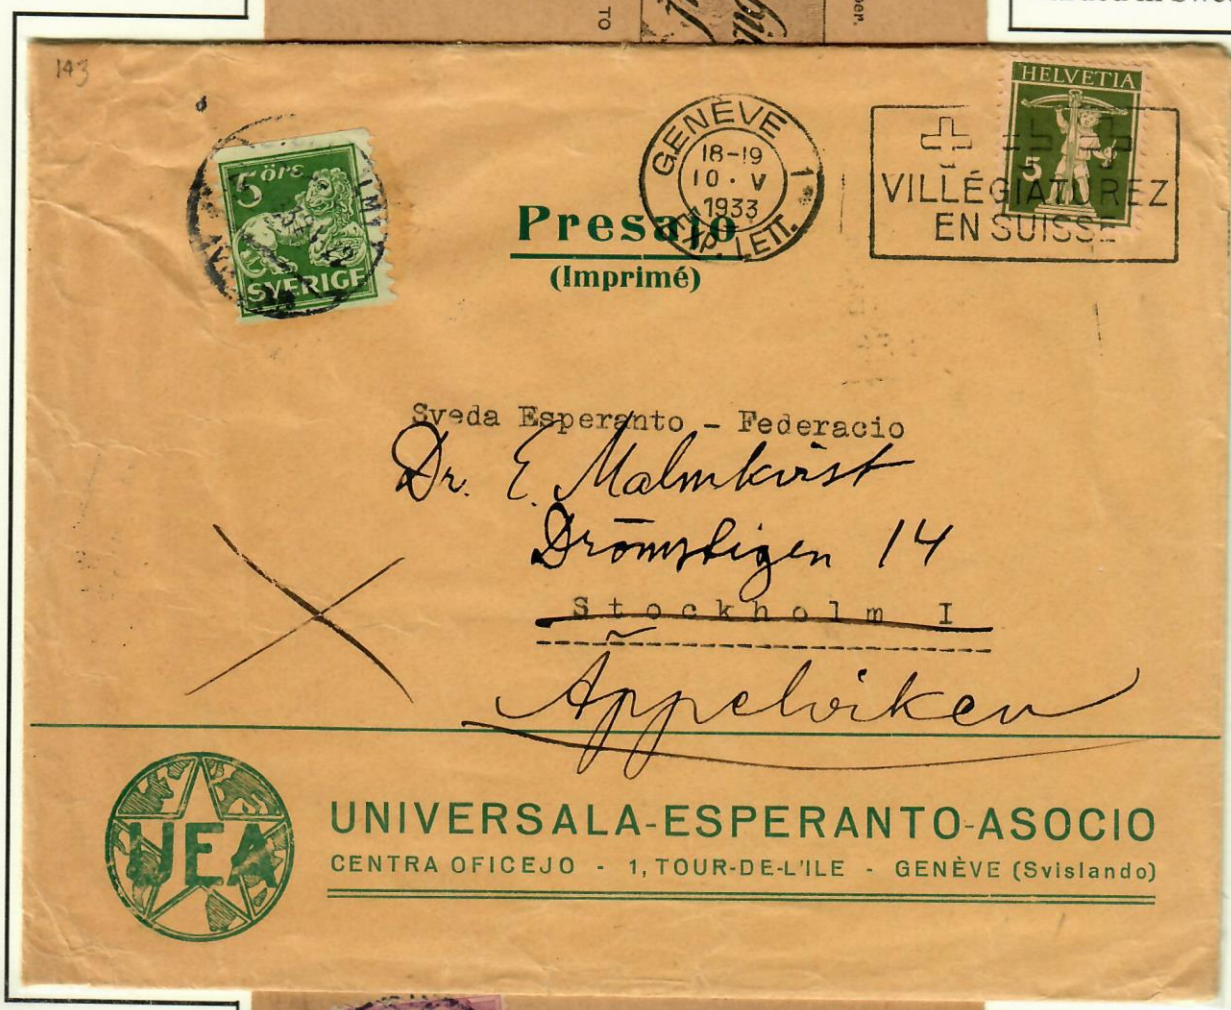 TO
per.
143
HELVETIA
5
5 öre
SVERIGE
GENÈVE 1
18-19
10. V
1933
EXP. LETT.
VILLÉGIATUREZ
EN SUISSE
Presaĵo
(Imprimé)
Sveda Esperanto - Federacio
Dr. E. Malmkvist
Drömstigen 14
Stockholm I
Äppelviken
UEA
UNIVERSALA-ESPERANTO-ASOCIO
CENTRA OFICEJO - 1, TOUR-DE-L'ILE - GENÈVE (Svislando)